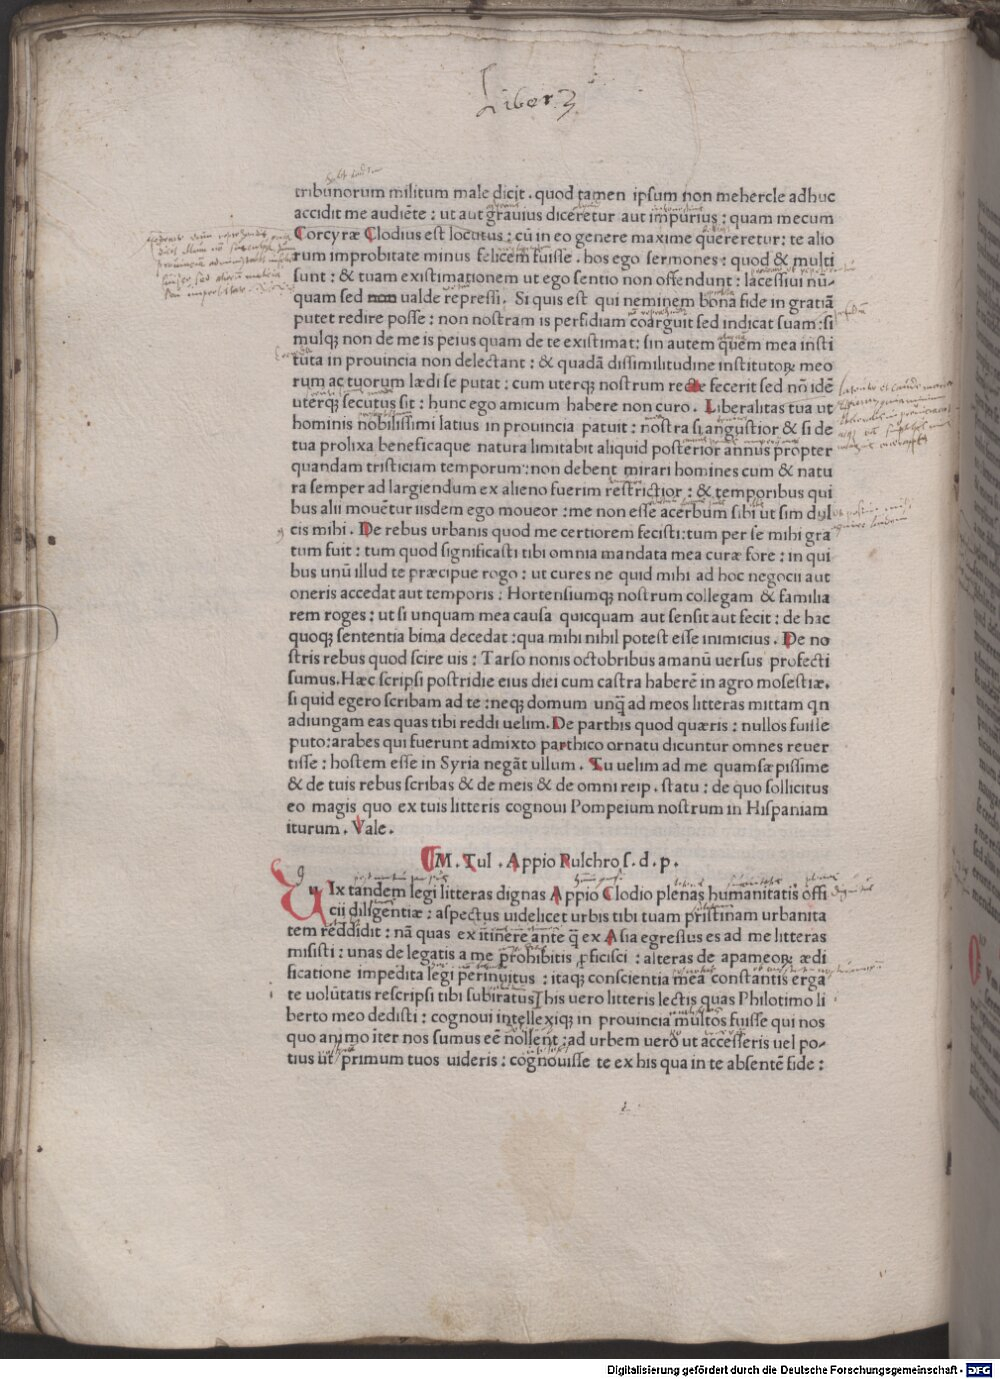 Liber 3
tribunorum militum male dicit . quod tamen ipsum non mehercle adhuc
accidit me audiēte : ut aut grauius diceretur aut impurius : quam mecum
Corcyræ Clodius est locutus : cū in eo genere maxime quereretur : te alio
rum improbitate minus felicem fuisse . hos ego sermones : quod & multi
sunt : & tuam existimationem ut ego sentio non offendunt : lacessiui nū-
quam sed non ualde repressi . Si quis est qui neminem bona fide in gratiā
putet redire posse : non nostram is perfidiam coarguit sed indicat suam : si
mulqꝫ non de me is peius quam de te existimat : sin autem quem mea insti
tuta in prouincia non delectant : & quadā dissimilitudine institutoꝝ meo
rum ac tuorum lædi se putat : cum uterqꝫ nostrum recte fecerit sed nō idē
uterqꝫ secutus sit : hunc ego amicum habere non curo . Liberalitas tua ut
hominis nobilissimi latius in prouincia patuit : nostra si angustior & si de
tua prolixa beneficaque natura limitabit aliquid posterior annus propter
quandam tristiciam temporum : non debent mirari homines cum & natu
ra semper ad largiendum ex alieno fuerim restrictior : & temporibus qui
bus alii mouētur iisdem ego moueor : me non esse acerbum sibi ut sim dul
cis mihi . De rebus urbanis quod me certiorem fecisti : tum per se mihi gra
tum fuit : tum quod significasti tibi omnia mandata mea curæ fore : in qui
bus unū illud te præcipue rogo : ut cures ne quid mihi ad hoc negocii aut
oneris accedat aut temporis : Hortensiumqꝫ nostrum collegam & familia
rem roges : ut si unquam mea causa quicquam aut sensit aut fecit : de hac
quoqꝫ sententia bima decedat : qua mihi nihil potest esse inimicius . De no
stris rebus quod scire uis : Tarso nonis octobribus amanū uersus profecti
sumus . Hæc scripsi postridie eius diei cum castra haberē in agro mosestiæ .
si quid egero scribam ad te : neqꝫ domum unq̄ ad meos litteras mittam qn
adiungam eas quas tibi reddi uelim . De parthis quod quæris : nullos fuisse
puto : arabes qui fuerunt admixto parthico ornatu dicuntur omnes reuer
tisse : hostem esse in Syria negāt ullum . Tu uelim ad me quamsæpissime
& de tuis rebus scribas & de meis & de omni reip . statu : de quo sollicitus
eo magis quo ex tuis litteris cognoui Pompeium nostrum in Hispaniam
iturum . Vale .
M . Tul . Appio Pulchro s . d . p .
Vix tandem legi litteras dignas Appio Clodio plenas humanitatis offi
cii diligentiæ : aspectus uidelicet urbis tibi tuam pristinam urbanita
tem reddidit : nā quas ex itinere ante q̄ ex Asia egressus es ad me litteras
misisti : unas de legatis a me prohibitis ꝓficisci : alteras de apameoꝝ ædi
ficatione impedita legi perinuitus : itaqꝫ conscientia mea constantis erga
te uolūtatis rescripsi tibi subiratus his uero litteris lectis quas Philotimo li
berto meo dedisti : cognoui intellexiqꝫ in prouincia multos fuisse qui nos
quo animo īter nos sumus eē nollent : ad urbem uero ut accesseris uel po-
tius ut primum tuos uideris : cognouisse te ex his qua in te absentē fide :
Digitalisierung gefördert durch die Deutsche Forschungsgemeinschaft - DFG